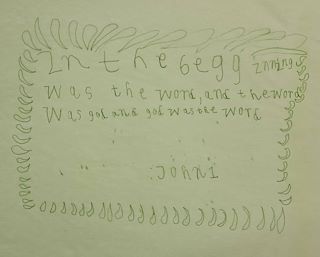 In the begg inning
Was the word, and the word
Was god and god was the word
John 1